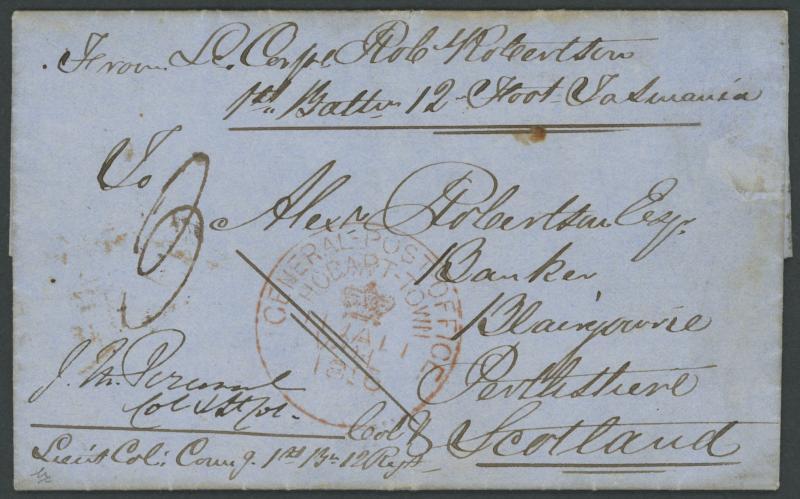 From L. Corpl Robt Robertson
1st Battn 12 Foot Tasmania
To
3
Alexr Robertson Esqr.
Banker
Blairgowrie
Perthshire
Scotland
GENERAL-POST-OFFICE
HOBART-TOWN
JA
J. M. Perceval
Col & Lt Col.
Lieut Col: Comg. 1st Bn 12 Regt